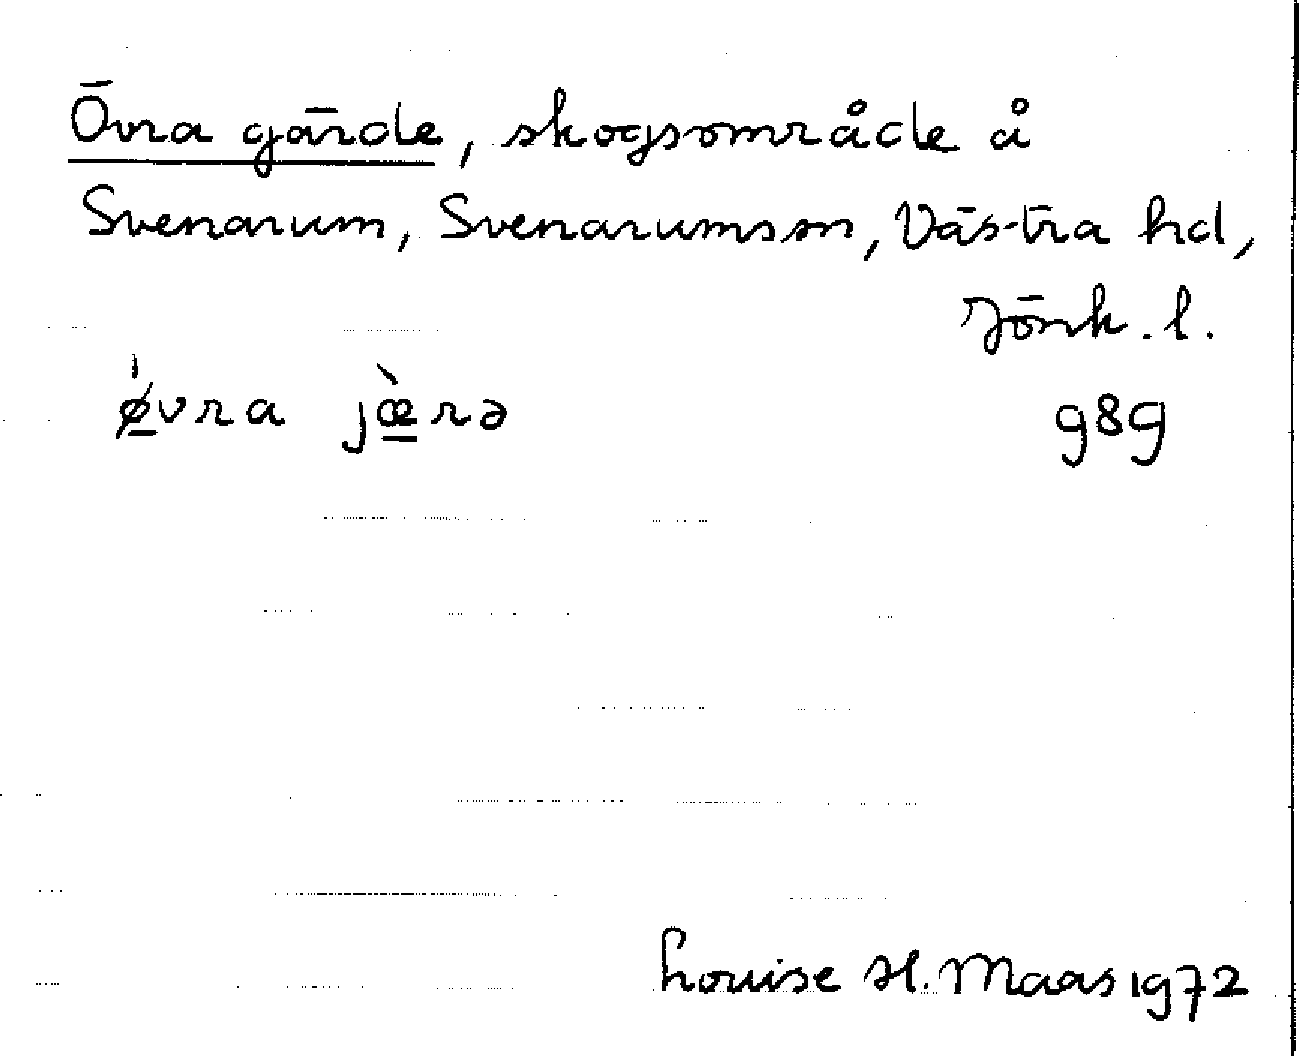 Övra gärde, skogsområde å
Svenarum, Svenarumssn, Västra hd,
Jönk. l.
ǿ̲vra jœ̲̀rə 989
Louise H. Maas 1972